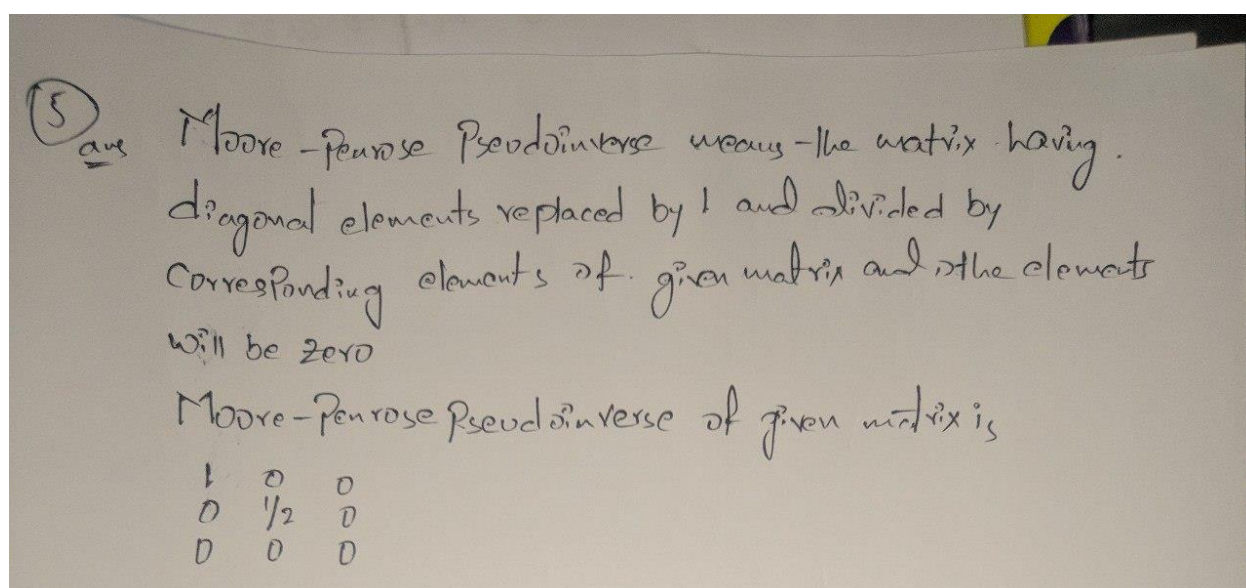 5
ans Moore-Penrose Pseodoinverse means-the matrix having.
diagonal elements replaced by 1 and divided by
Corresponding elements of. given matrix and othe elements
will be zero
Moore-Penrose Pseudoinverse of given matrix is
1 0 0
0 1/2 0
0 0 0